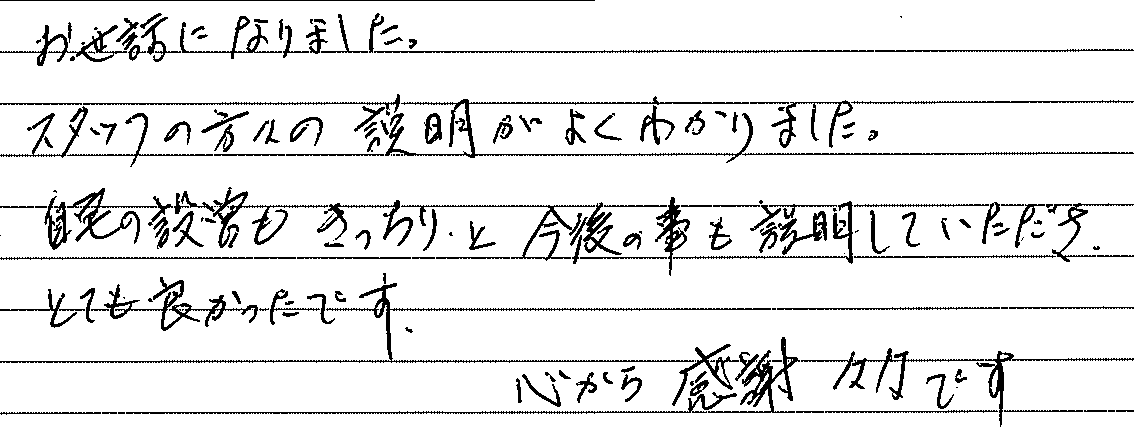 お世話になりました。
スタッフの方々の説明がよくわかりました。
自宅の設営もきっちりと今後の事も説明していただき、
とても良かったです、
心から感謝々々です